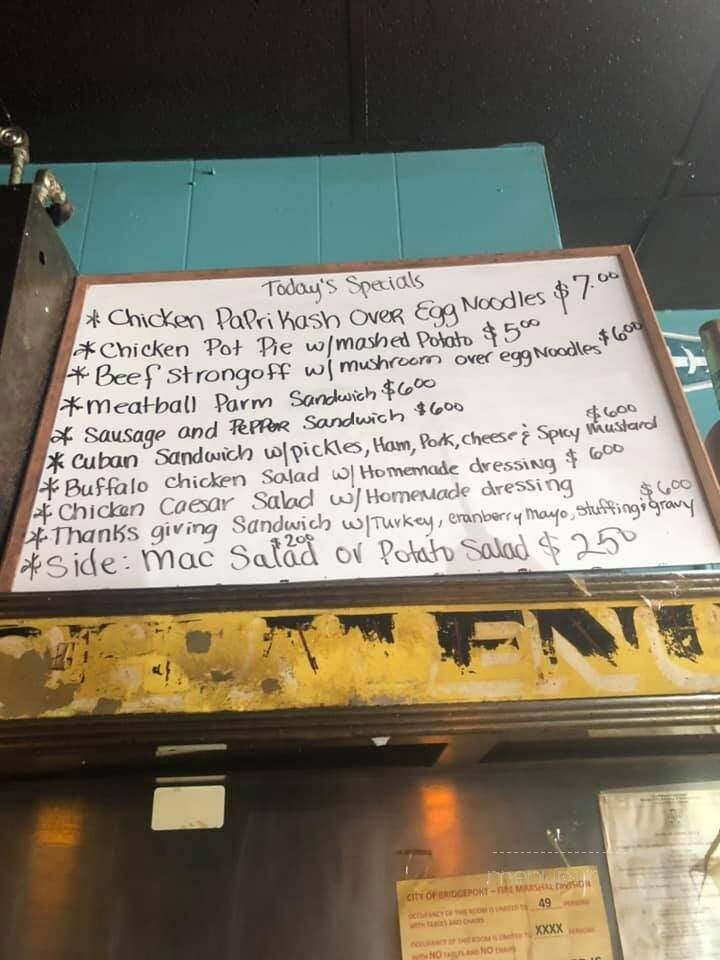 Today's Specials
* Chicken PaPriKash OVER Egg Noodles $7.00
* Chicken Pot Pie w/mashed Potato $5.00
* Beef strongoff w/ mushroom over egg Noodles $6.00
* meatball Parm Sandwich $6.00
* Sausage and PEPPER Sandwich $6.00
* Cuban Sandwich w/pickles, Ham, Pork, cheese & Spicy Mustard $6.00
* Buffalo chicken Salad w/ Homemade dressing $6.00
* Chicken Caesar Salad w/ Homemade dressing
* Thanks giving Sandwich w/Turkey, cranberry mayo, stuffing & gravy $6.00
* Side: Mac Salad $2.00 or Potato Salad $2.50
ENU
CITY OF BRIDGEPORT - FIRE MARSHAL DIVISION
OCCUPANCY OF THIS ROOM IS LIMITED TO 49 PERSONS
WITH TABLES AND CHAIRS
OCCUPANCY OF THIS ROOM IS LIMITED TO XXXX PERSONS
WITH NO TABLES AND NO CHAIRS